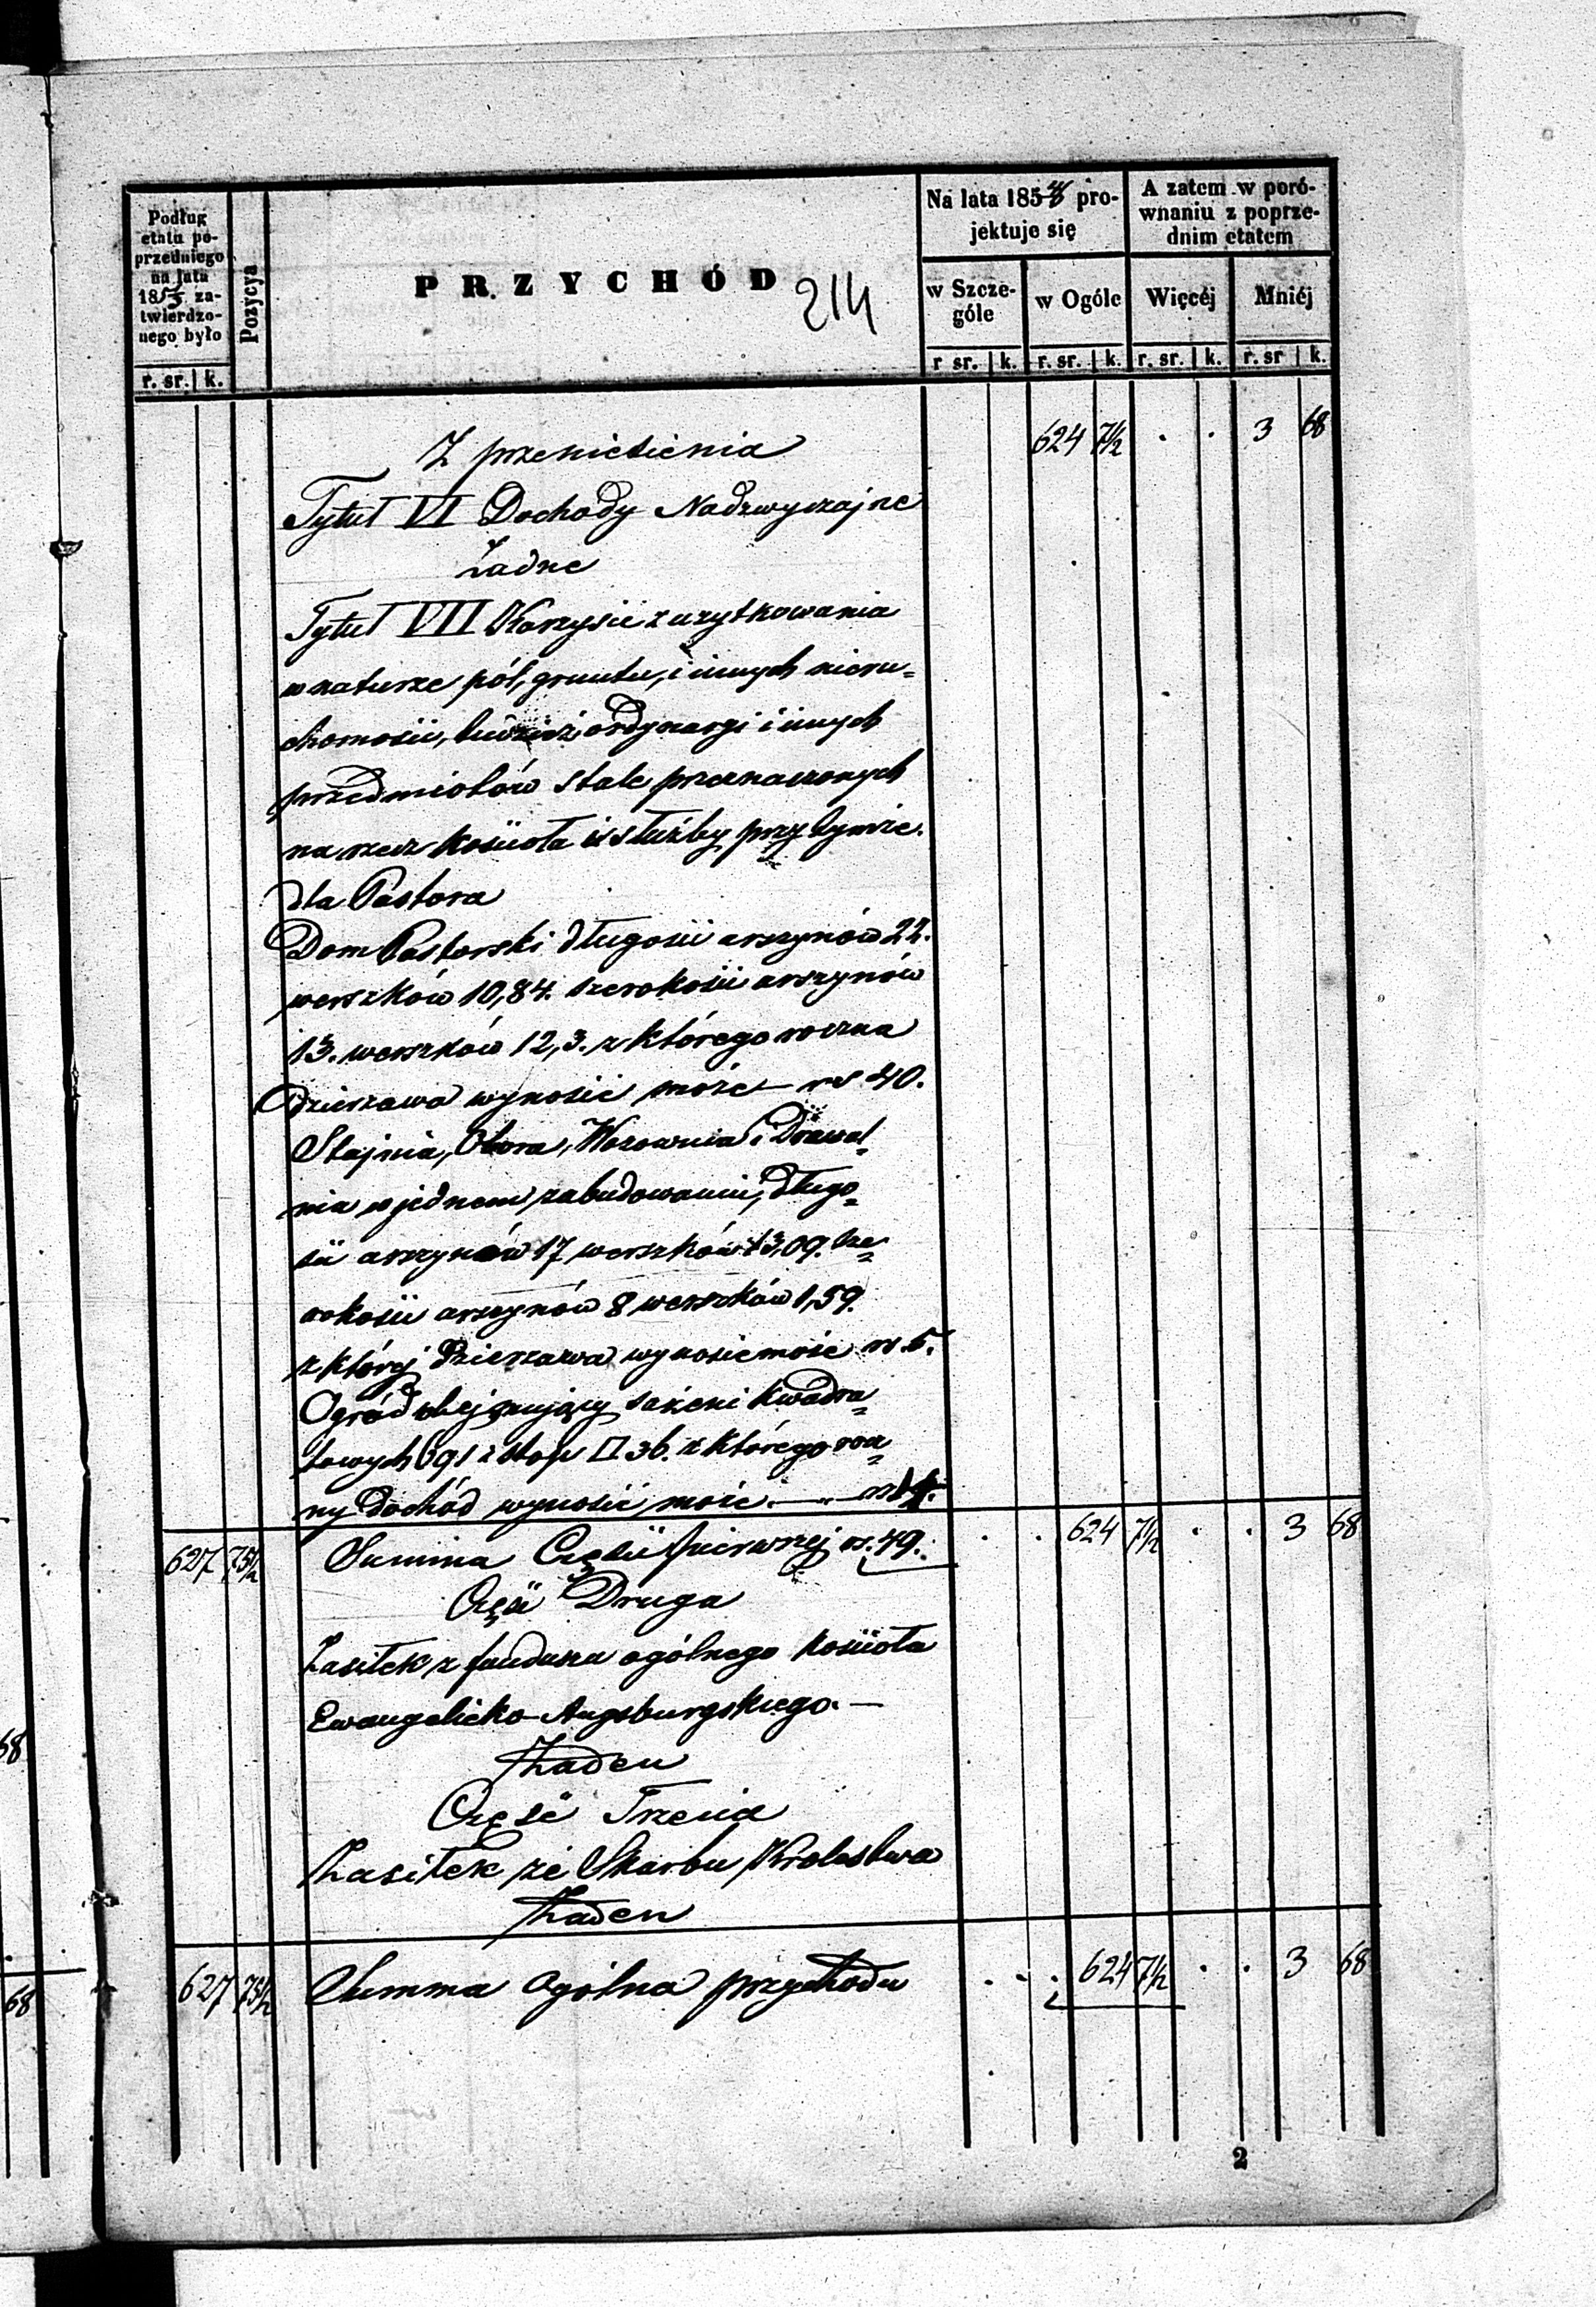 Podług
etatu po-
przedniego
na lata
185 za-
twierdzo-
nego było
r. sr. | k.
Pozycya
PRZYCHÓD
214
Na lata 185 pro-
jektuje się
w Szcze-
góle
w Ogóle
r sr. | k. r. sr. | k.
A zatem w poró-
wnaniu z poprze-
dnim etatem
Więcéj
Mniéj
r. sr. | k. r. sr | k.
Z przeniesienia 624 7½ . . 3 68
Tytuł VI Dochody Nadzwyczajne
Żadne
Tytuł VII Korzyści z użytkowania
w naturze pól, gruntu, i innych nieru=
chomości, tudzież ordynaryi i innych
przedmiotów stale przeznaczonych
na rzecz kościoła i służby przy tymże.
dla Pastora
Dom Pastorski długości arszynów 22.
werszków 10,84. szerokości arszynów
13. werszków 12,3. z którego roczna
dzierzawa wynosić może rs 40.
Stajnia, Obora, Wozownia i Drewal=
nia w jednem zabudowaniu, długo=
ści arszynów 17 werszków 13,09. sze=
rokości arszynów 8 werszków 1,59.
z której dzierzawa wynosić może rs. 5.
Ogród obejmujący sążeni kwadra=
towych 691 i stop □ 36. z którego rocz=
ny dochód wynosić może. — „ — rs 4.
627 75½ Summa Części pierwszej rs. 49. . . 624 7½ . . 3 68
Część Druga
Zasiłek z funduszu ogólnego kościoła
Ewangelicko-Augsburgskiego. —
Żaden
Część Trzecia
Zasiłek ze Skarbu Królestwa
Żaden
627 75½ Summa ogólna przychodu . . . 624 7½ . . 3 68
2
68
68